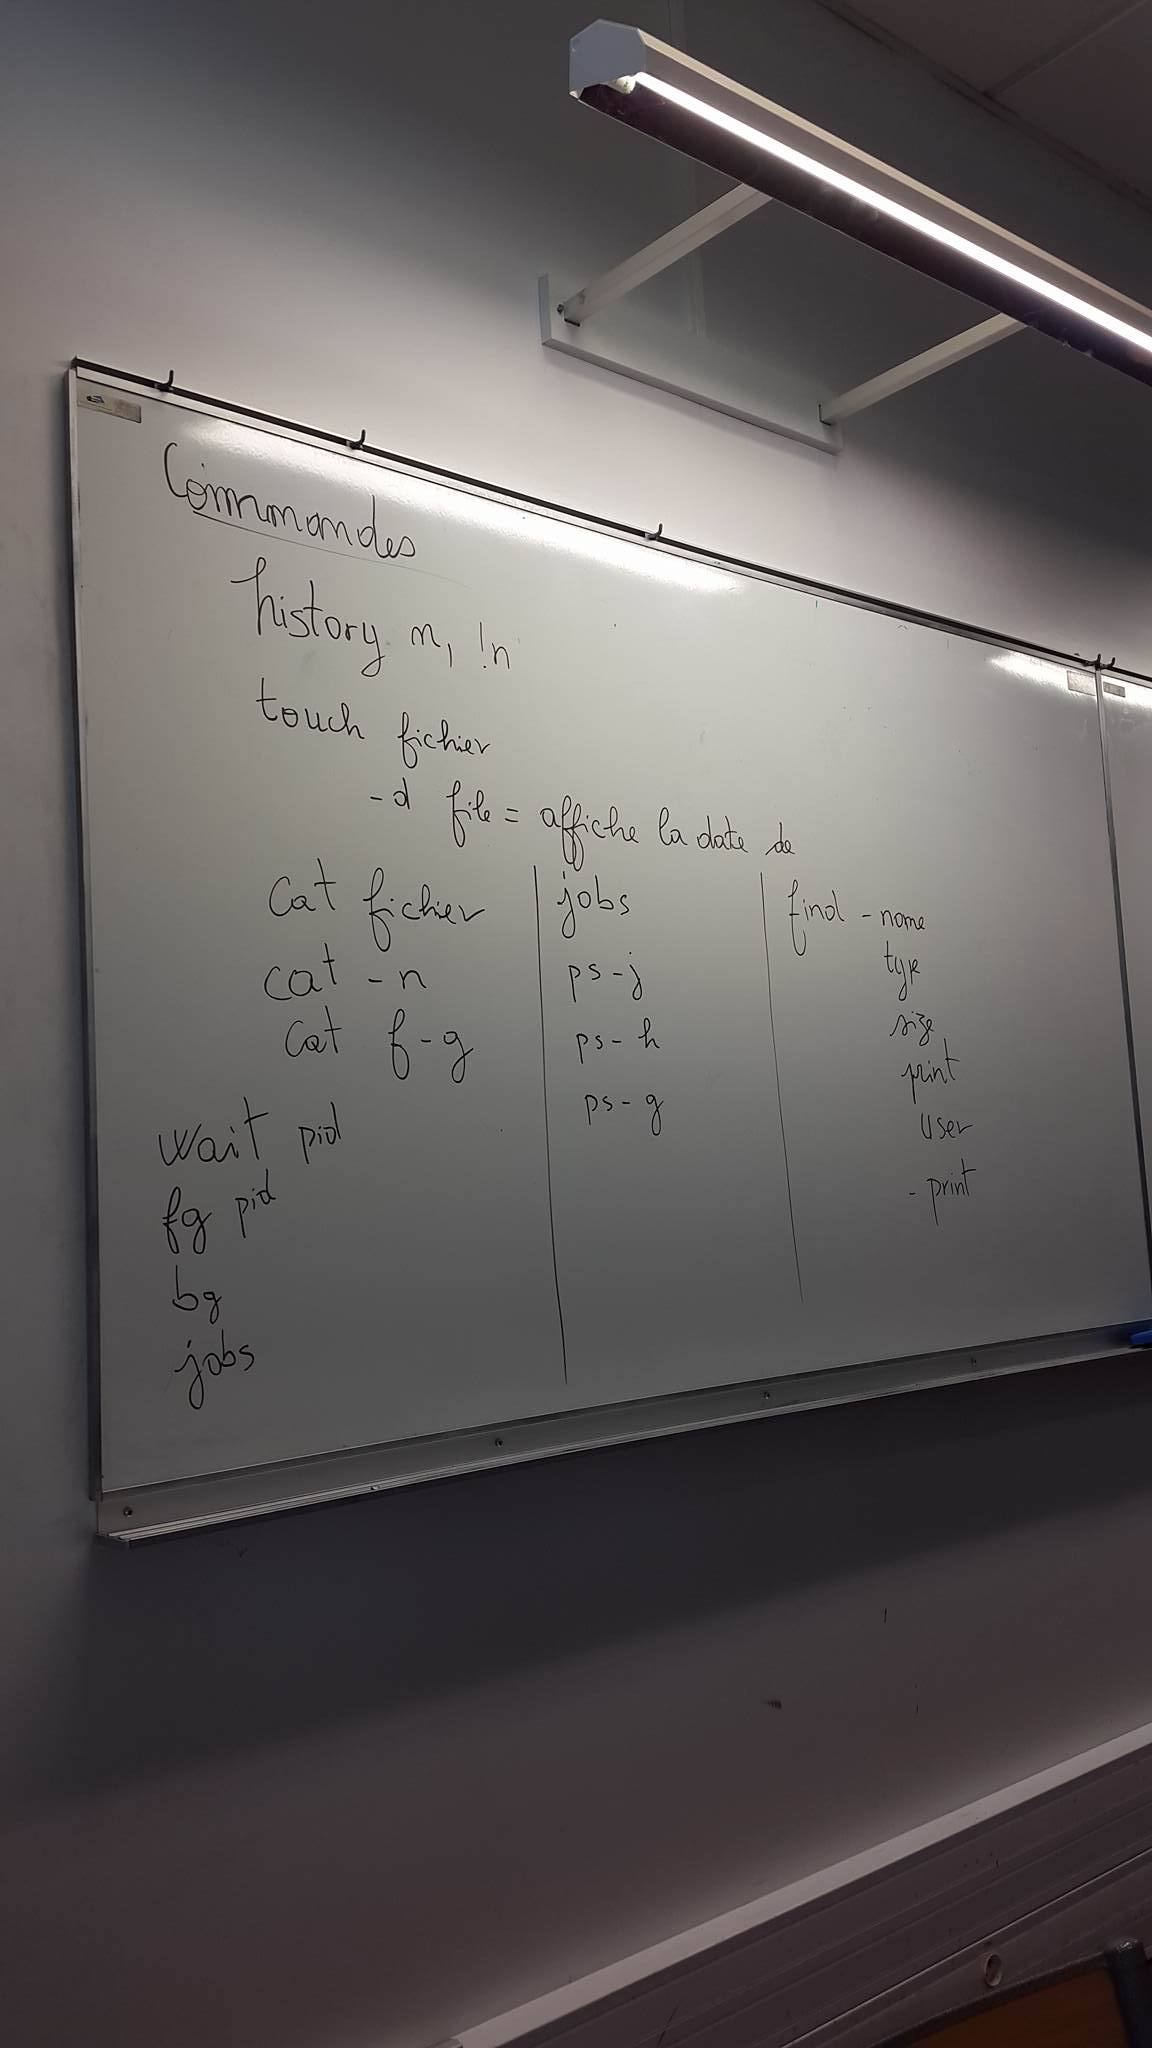 Commandes
history n, !n
touch fichier
-d file = affiche la date de
cat fichier
cat -n
cat f-g
wait pid
fg pid
bg
jobs
jobs
ps-j
ps-h
ps-g
find -name
type
size
print
user
- print